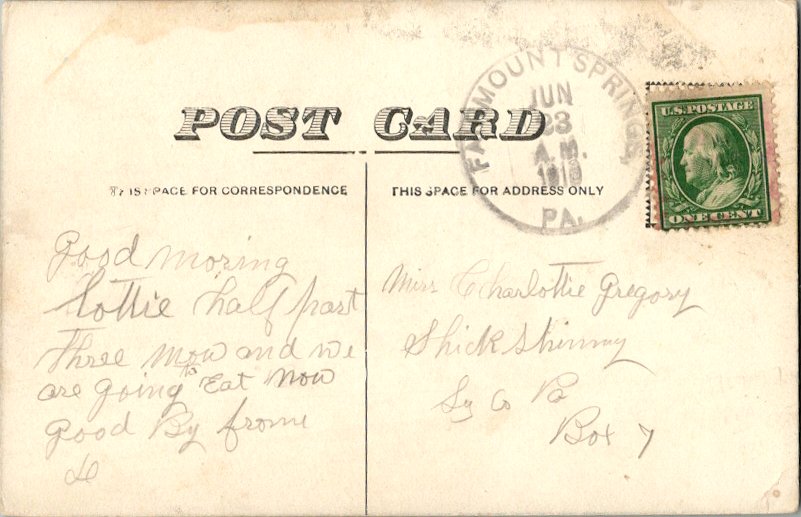 POST CARD
THIS SPACE FOR CORRESPONDENCE
THIS SPACE FOR ADDRESS ONLY
FAIRMOUNT SPRINGS,
JUN
23
A.M.
PA.
U.S. POSTAGE
ONE CENT
Good moring
Lottie half past
Three mow and we
are going to Eat now
Good By frome
Miss Charlottie Gregory
Shickshinny
Lu Co Pa
Box 7